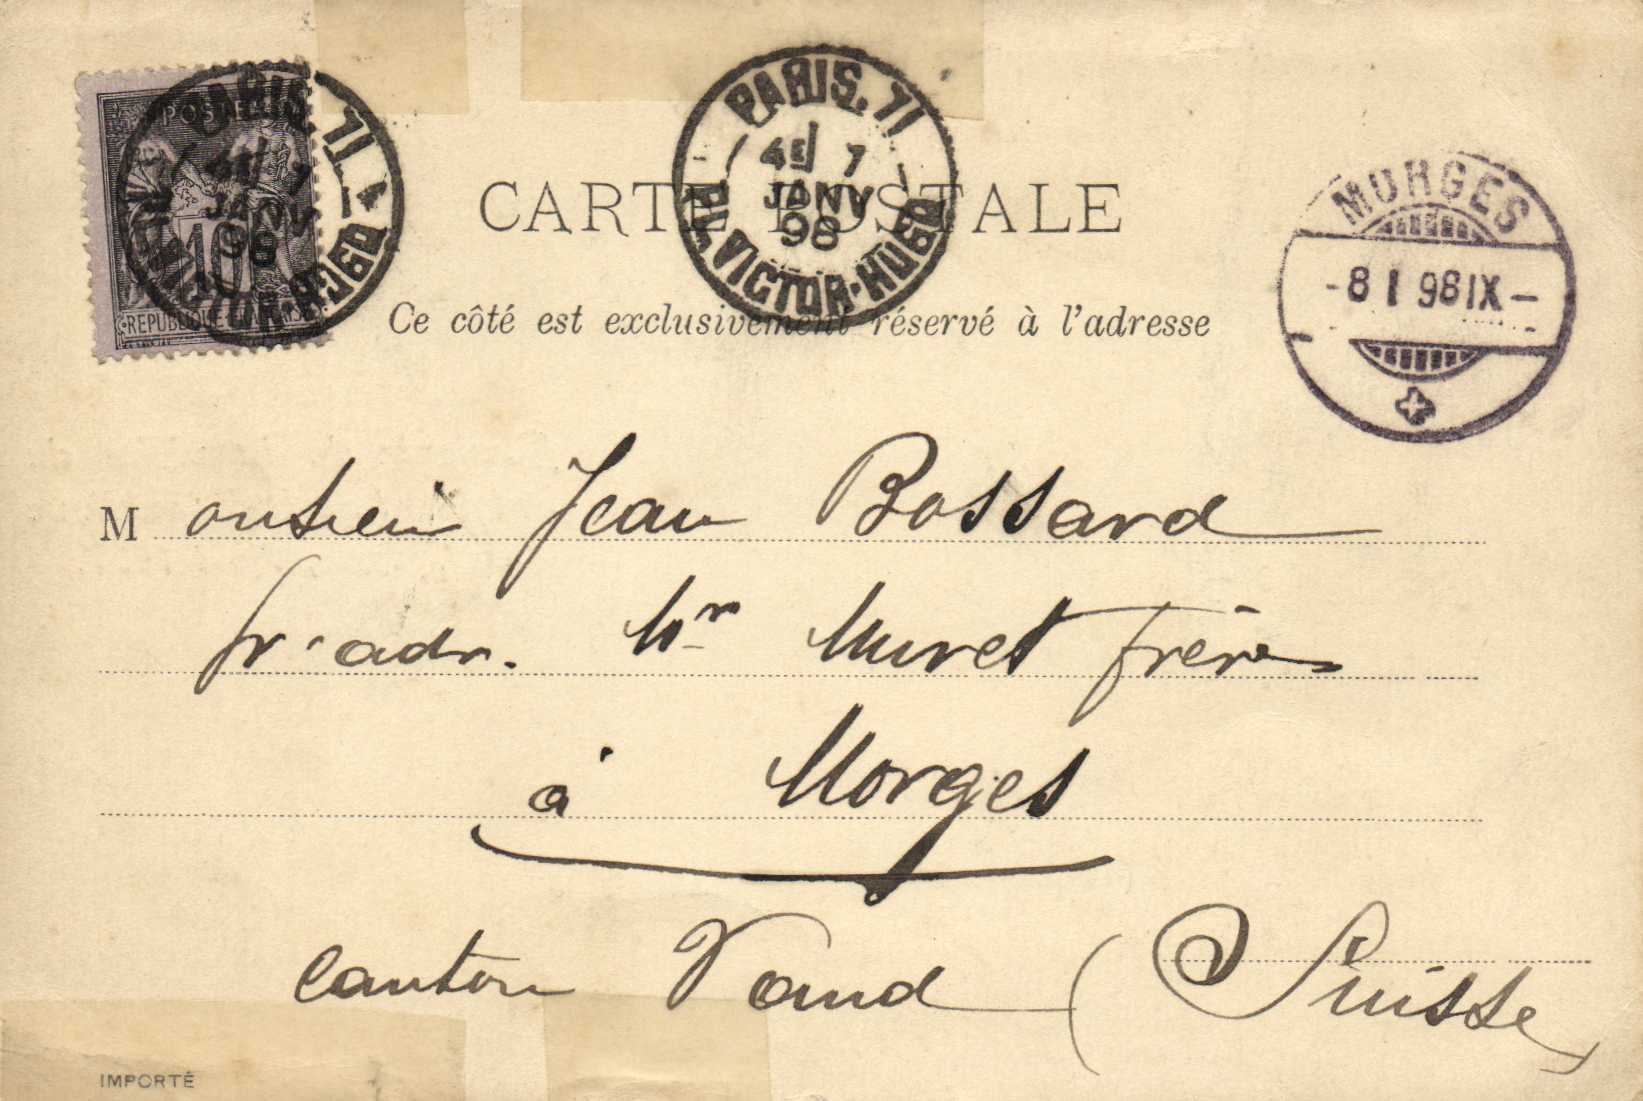 POSTES
10
REPUBLIQUE FRANÇAISE
PARIS. 71
4E 7
JANV
98
PL. VICTOR-HUGO
PARIS. 71
4E 7
JANV
98
PL. VICTOR-HUGO
MORGES
-8 I 98 IX-
CARTE POSTALE
Ce côté est exclusivement réservé à l'adresse
Monsieur Jean Bossard
pr adr. Mr Muret frères
à Morges
canton Vaud (Suisse)
IMPORTÉ